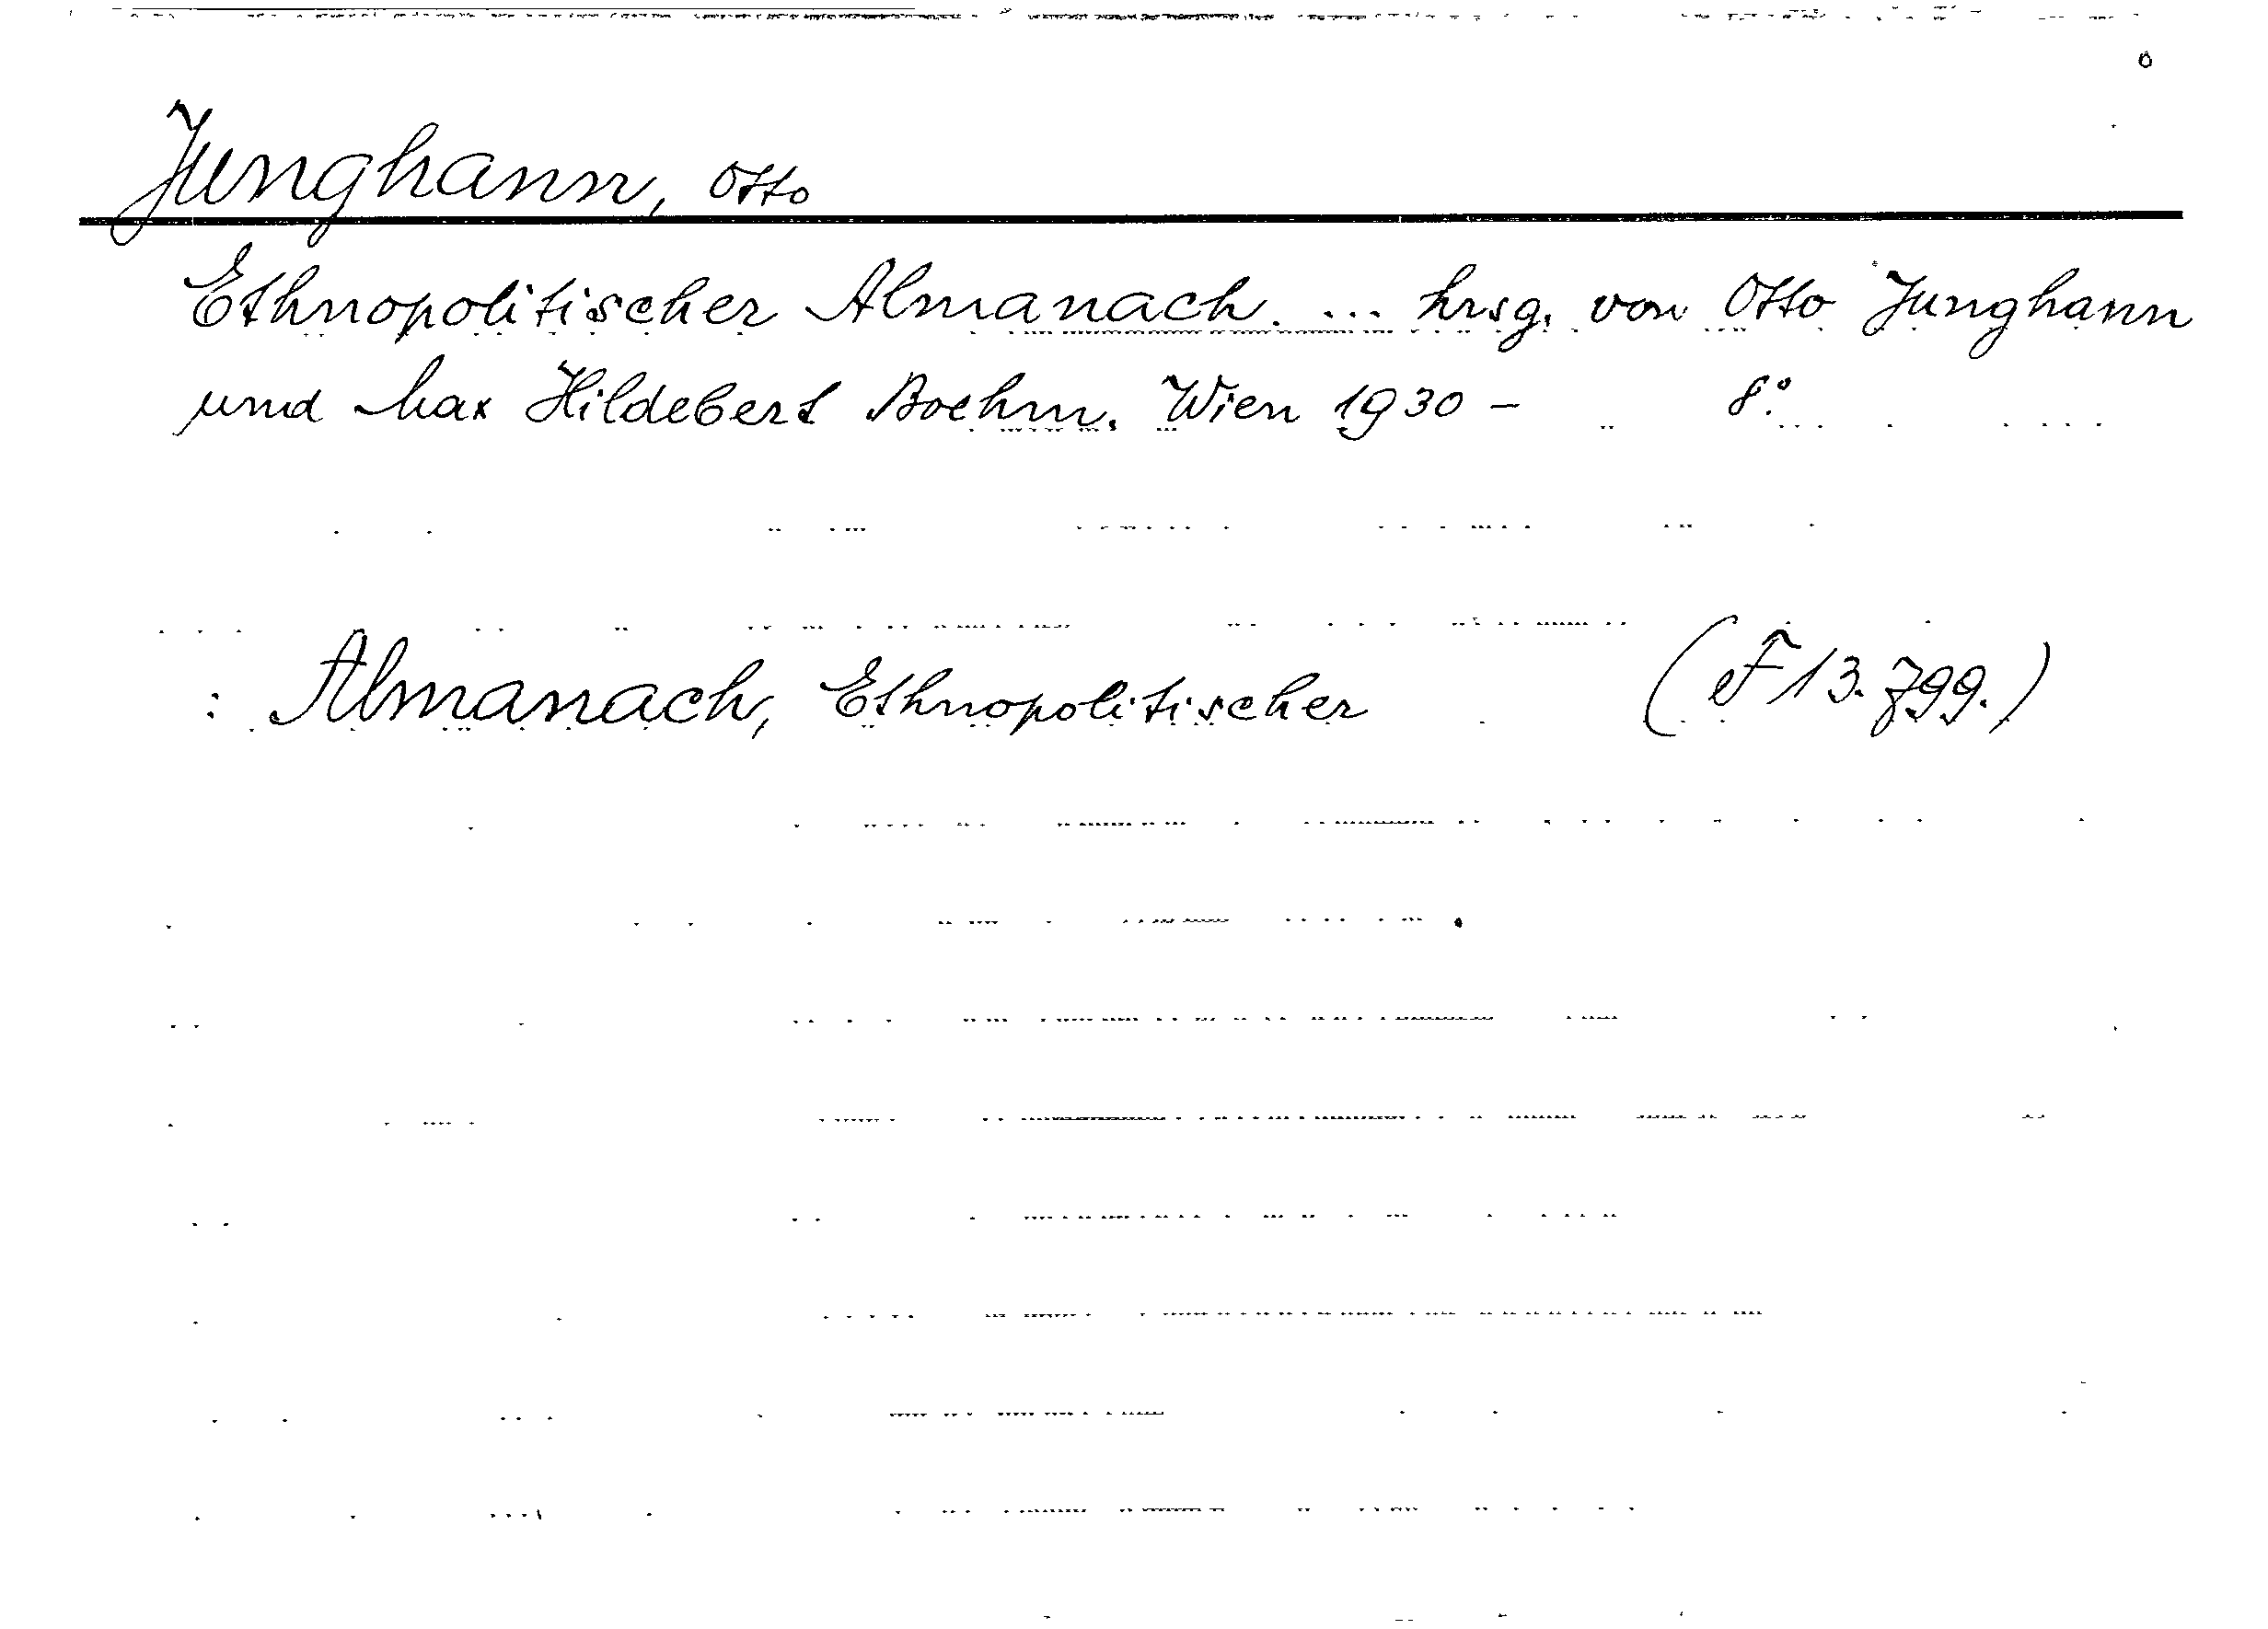 Junghann, Otto
Ethnopolitischer Almanach. ... hrsg. von Otto Junghann
und Max Hildebert Boehm. Wien 1930 - 8°.
: Almanach, Ethnopolitischer (F 13.799.)